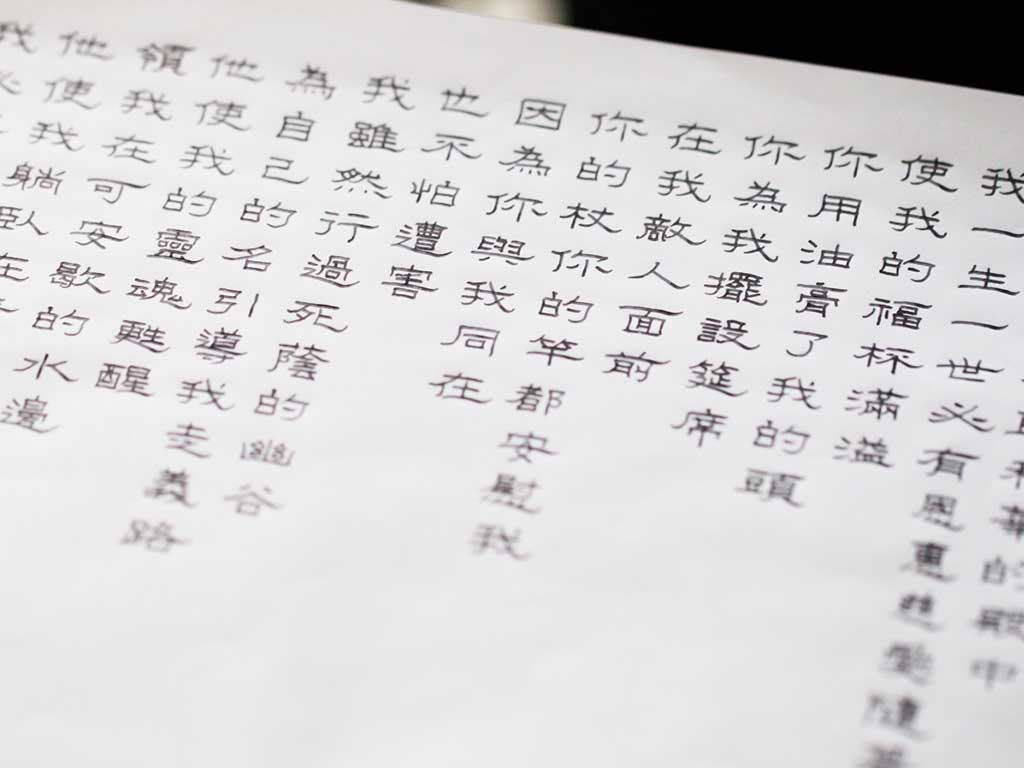 我必
他使我躺臥在
領我在可安歇的水邊
他使我的靈魂甦醒
為自己的名引導我走義路
我雖然行過死蔭的幽谷
也不怕遭害
因為你與我同在
你的杖你的竿都安慰我
在我敵人面前
你為我擺設筵席
你用油膏了我的頭
使我的福杯滿溢
我一生一世必有恩惠慈愛隨
和華的殿中